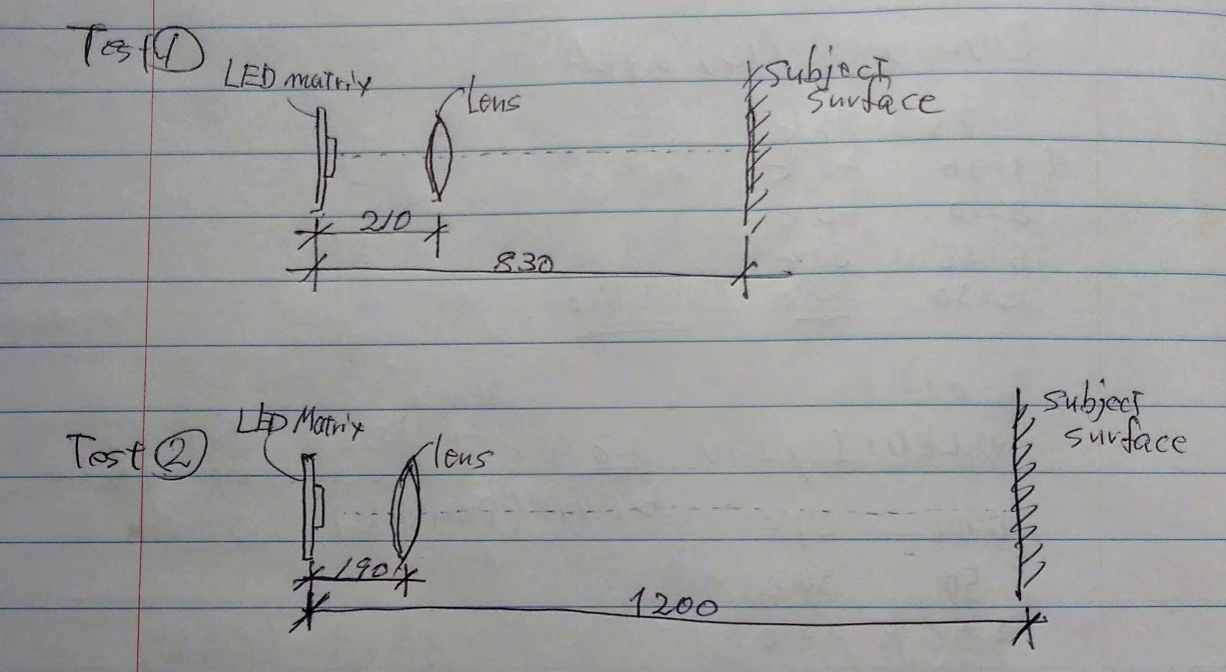 Test ①
LED matrix
lens
subject
surface
210
830
Test ②
LED Matrix
lens
subject
surface
190
1200